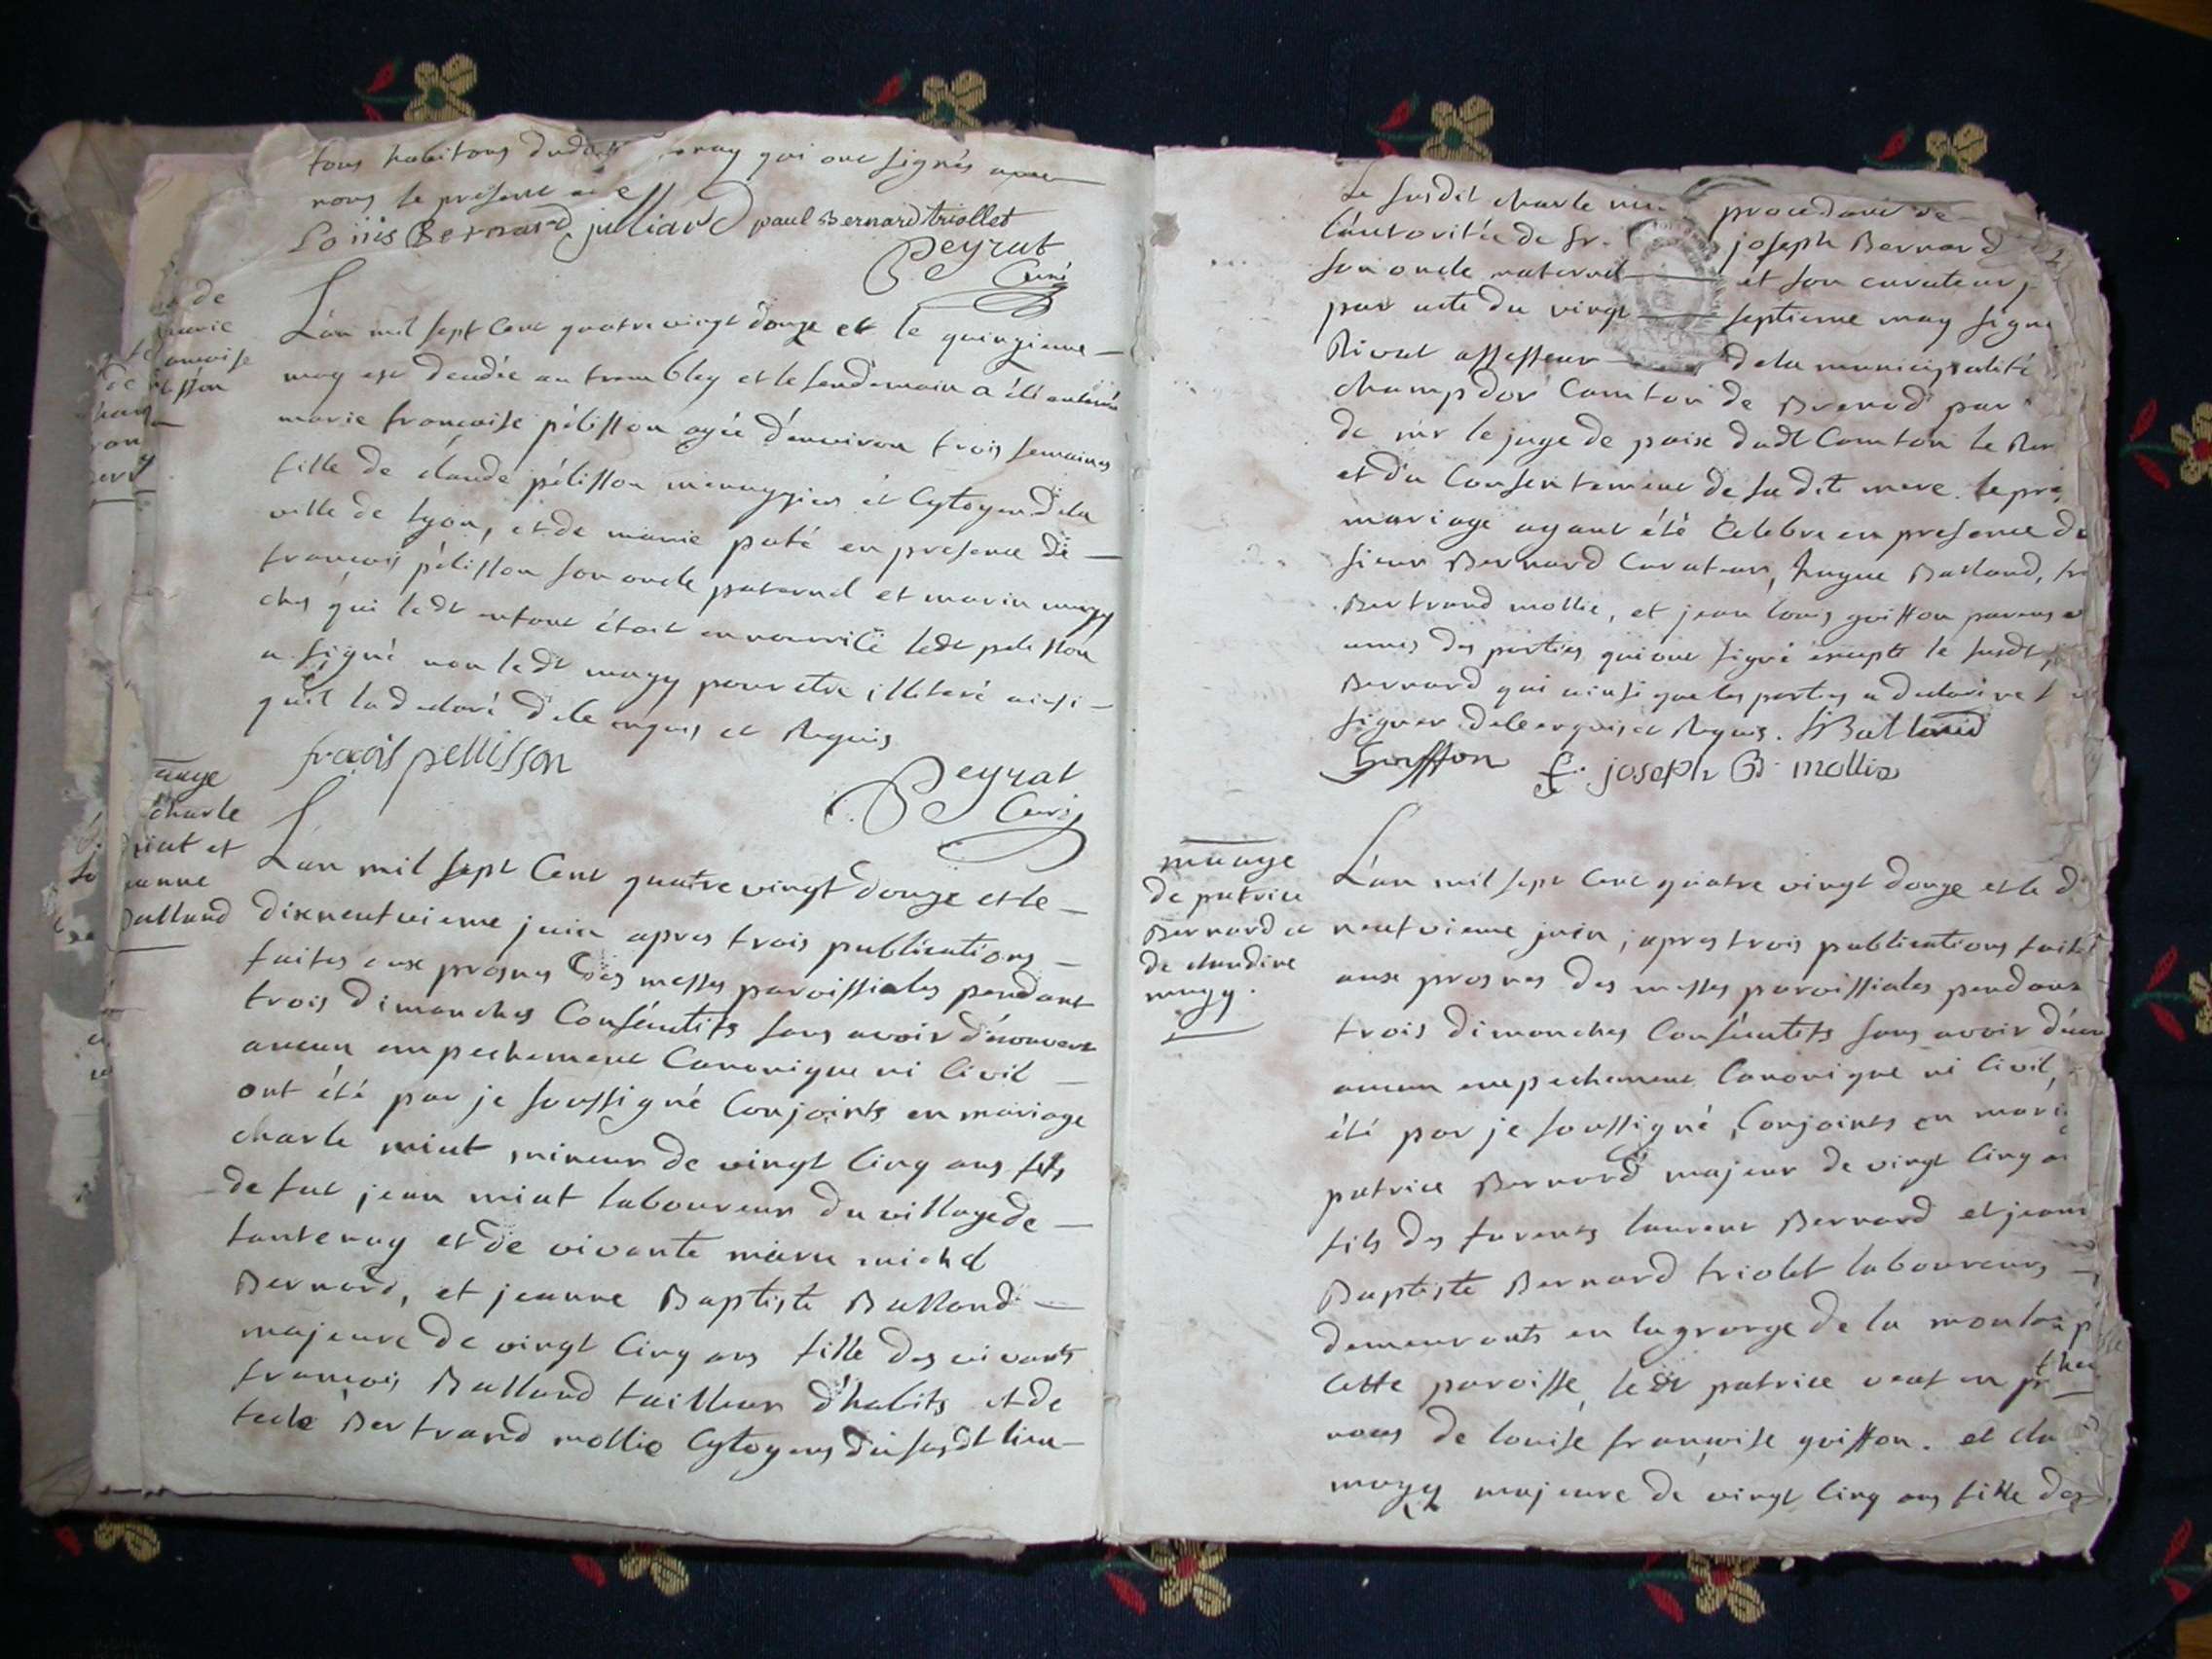 tous habitans dudt qui ont signés avec
nous le présent acte
Loüis Bernard julliard paul Bernard triollet
Peyrat
Curé
L'an mil sept Cent quatre vingt douze et le quinzieme
may est décédée au trembley et le lendemain a été enterrée
marie françoise pélisson agée d'environ trois semaines
fille de claude pélisson menuzier et Cytoyen de la
ville de lyon, et de marie paté en presence de
françois pélisson son oncle paternel et marin mugy
chés qui ledt enfant étoit en nourrice ledt pelisson
a signé non ledt mugy pour etre illiteré ainsi
qu'il la declaré de ce enquis et Requis
pellisson
Peyrat
Curé
mage
charle
miat et
jeanne
Balland
L'an mil sept Cent quatre vingt douze et le
dixneuvieme juin apres trois publications
faites aux prosnes des messes paroissiales pendant
trois dimanches Conséutifs sans avoir découvert
aucun empechement Canonique ni Civil
ont été par je soussigné Conjoints en mariage
charle miat mineur de vingt Cinq ans fils
de fut jean miat laboureur du village de
lantenay et de vivante marie michel
Bernard, et jeanne Baptiste Balland
majeure de vingt Cinq ans fille des vivants
françois Balland tailleur d'habits et de
tecle Bertrand mollie Cytoyens du susdt lieu
Le susdit charle procedant de
l'autoritée de fr. joseph Bernard
son oncle maternel et son curateur
par acte du vingt septieme may signé
Rivat assesseur de la municipalité
champdor Camton de Brenod par
de mr le juge de paix dudt Camton le
et du Consentement de sa dite mere. le
mariage ayant été Celebre en presence de
sieur Bernard Curateur, hugue Balland,
Bertrand mollie, et jean louis guisson parens
amis des parties qui ont signé excepté le susdt
Bernard qui ainsi que les parties a declaré ne
signer de ce enquis et Requis. Balland
Guisson f. joseph B. mollie
mage
de patrice
Bernard et
de claudine
mugy.
L'an mil sept Cent quatre vingt douze et le
neufvieme juin, apres trois publications faites
aux prosnes des messes paroissiales pendant
trois dimanches Conséutifs sans avoir
aucun empechement Canonique ni Civil,
été par je soussigné Conjoints en
patrice Bernard majeur de vingt Cinq
fils des furents laurent Bernard et
Baptiste Bernard triolet laboureurs
demeurants en la grange de la
Cette paroisse, ledt patrice veuf en
noces de louise françoise guisson. et
mugy majeure de vingt Cinq ans fille des